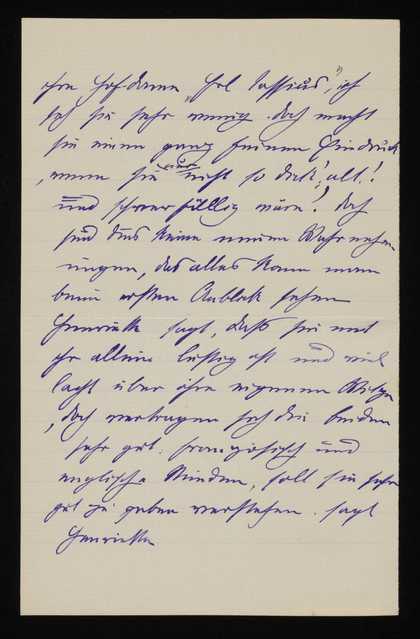 ihre Hofdame „Frl Cassius", ich
seh sie sehr wenig. doch macht
sie einen ganz feinen Eindruck
, wenn sie nur nicht so dick!, alt!
und schwerfällig wäre! doch
sind dies keine neuen Wahrnehm
ungen, das alles kann man
beim ersten Anblick sehen
Henriette sagt, daß sie mit
ihr allein lustig ist und viel
lacht über ihre eigenen Witze
, doch vertragen sich die beiden
sehr gut. französisch und
englische Stunden, soll sie sehr
gut zu geben verstehen. sagt
Henriette